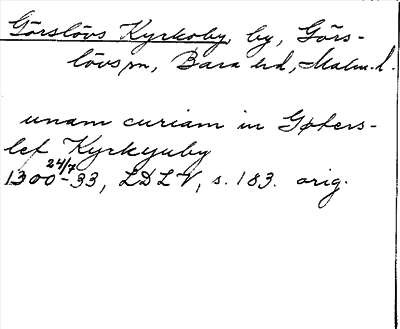 Görslövs Kyrkoby, by, Görs-
lövs sn, Bara hd, Malm. l.
unam curiam in Gøthers-
lef Kyrkyuby
1300 24/7 -33, LDLV, s. 183. orig.